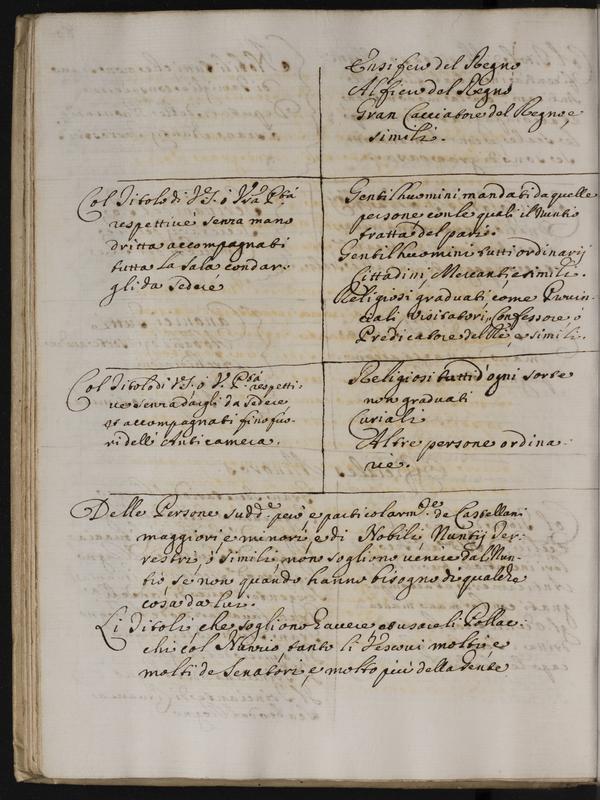 Ensifero del Regno
Alfiero del Regno
Gran Cacciatore del Regno, e
simili.
Col Titolo di V. S. ò V.ra P.tà
respettiuè senza mano
dritta accompagnati
tutta la sala con dar-
gli da sedere
Gentilhuomini mandati da quelle
persone con le quali il Nuntio
tratta del pari.
Gentilhuomini tutti ordinarij
Cittadini, Mercanti, e simili.
Religiosi graduati, come Prouin-
ciali, Visitatori, Confessore, ò
Predicatore del Rè, e simili.
Col Titolo di V. S. ò V. P.tà respetti-
uè senza dargli da sedere
et accompagnati fino fuo-
ri dell' Anticamera.
Religiosi tutti d'ogni sorte
non graduati
Curiali
Altre persone ordina-
rie.
Delle Persone sudd.e però, e particolarm.te de Castellani
maggiori, e minori, e di Nobili Nuntij Ter-
restri, ò simili, non sogliono venire dal Nun-
tio, se non quando hanno bisogno di qualche
cosa da lui.
Li Titoli, che sogliono hauere et usare li Pollac-
chi col Nunzio, tanto li Vescoui molti, e
molti de Senatori, e molto più della Gente